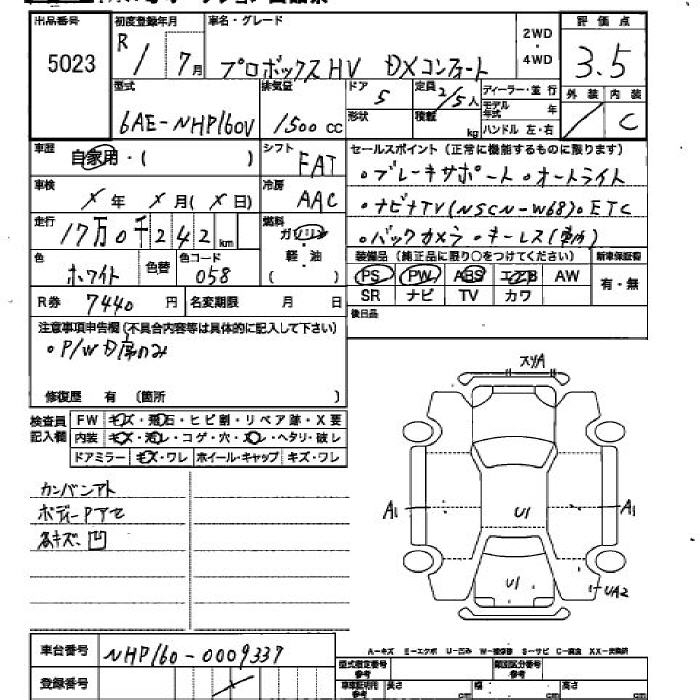 出品番号 初度登録年月 車名・グレード 2WD・4WD 評価点
5023 R1/7月 プロボックスHV DXコンフォート 3.5
型式 排気量 ドア 定員 ディーラー・並行 外装 内装
6AE-NHP160V 1500cc 5 2/5人 モデル年式 年 / C
形状 積載 kg ハンドル 左・右
車歴 自家用・( ) シフト FAT セールスポイント (正常に機能するものに限ります)
車検 X年 X月(X日) 冷房 AAC
。ブレーキサポート 。オートライト
。ナビナTV(NSCN-W68)。ETC
。バックカメラ 。キーレス
走行 17万0千242km 燃料 ガソリン 軽・油 ( )
色 ホワイト 色替 色コード 058
装備品 (純正品に限り○をつけてください) 新車保証書
PS PW ABS エアB AW 有・無
SR ナビ TV カワ
R券 7440円 名変期限 月 日 後日品
注意事項申告欄(不具合内容等は具体的に記入して下さい)
。P/W D席のみ
修復歴 有 (箇所 )
検査員記入欄 FW キズ・飛石・ヒビ割・リペア跡・X要
内装 キズ・汚レ・コゲ・穴・スレ・ヘタリ・破レ
ドアミラー キズ・ワレ ホイール・キャップ キズ・ワレ
カンバンアト
ボディーPアセ
各キズ、凹
スリA
A1 U1 A1
U1 UA2
A-キズ E-エクボ U-凹ミ W-補修跡 S-サビ C-腐食 XX-交換済
車台番号 NHP160-0009337
登録番号
型式指定番号 参考 類別区分番号 参考
車庫証明用 参考 長さ cm 幅 cm 高さ cm